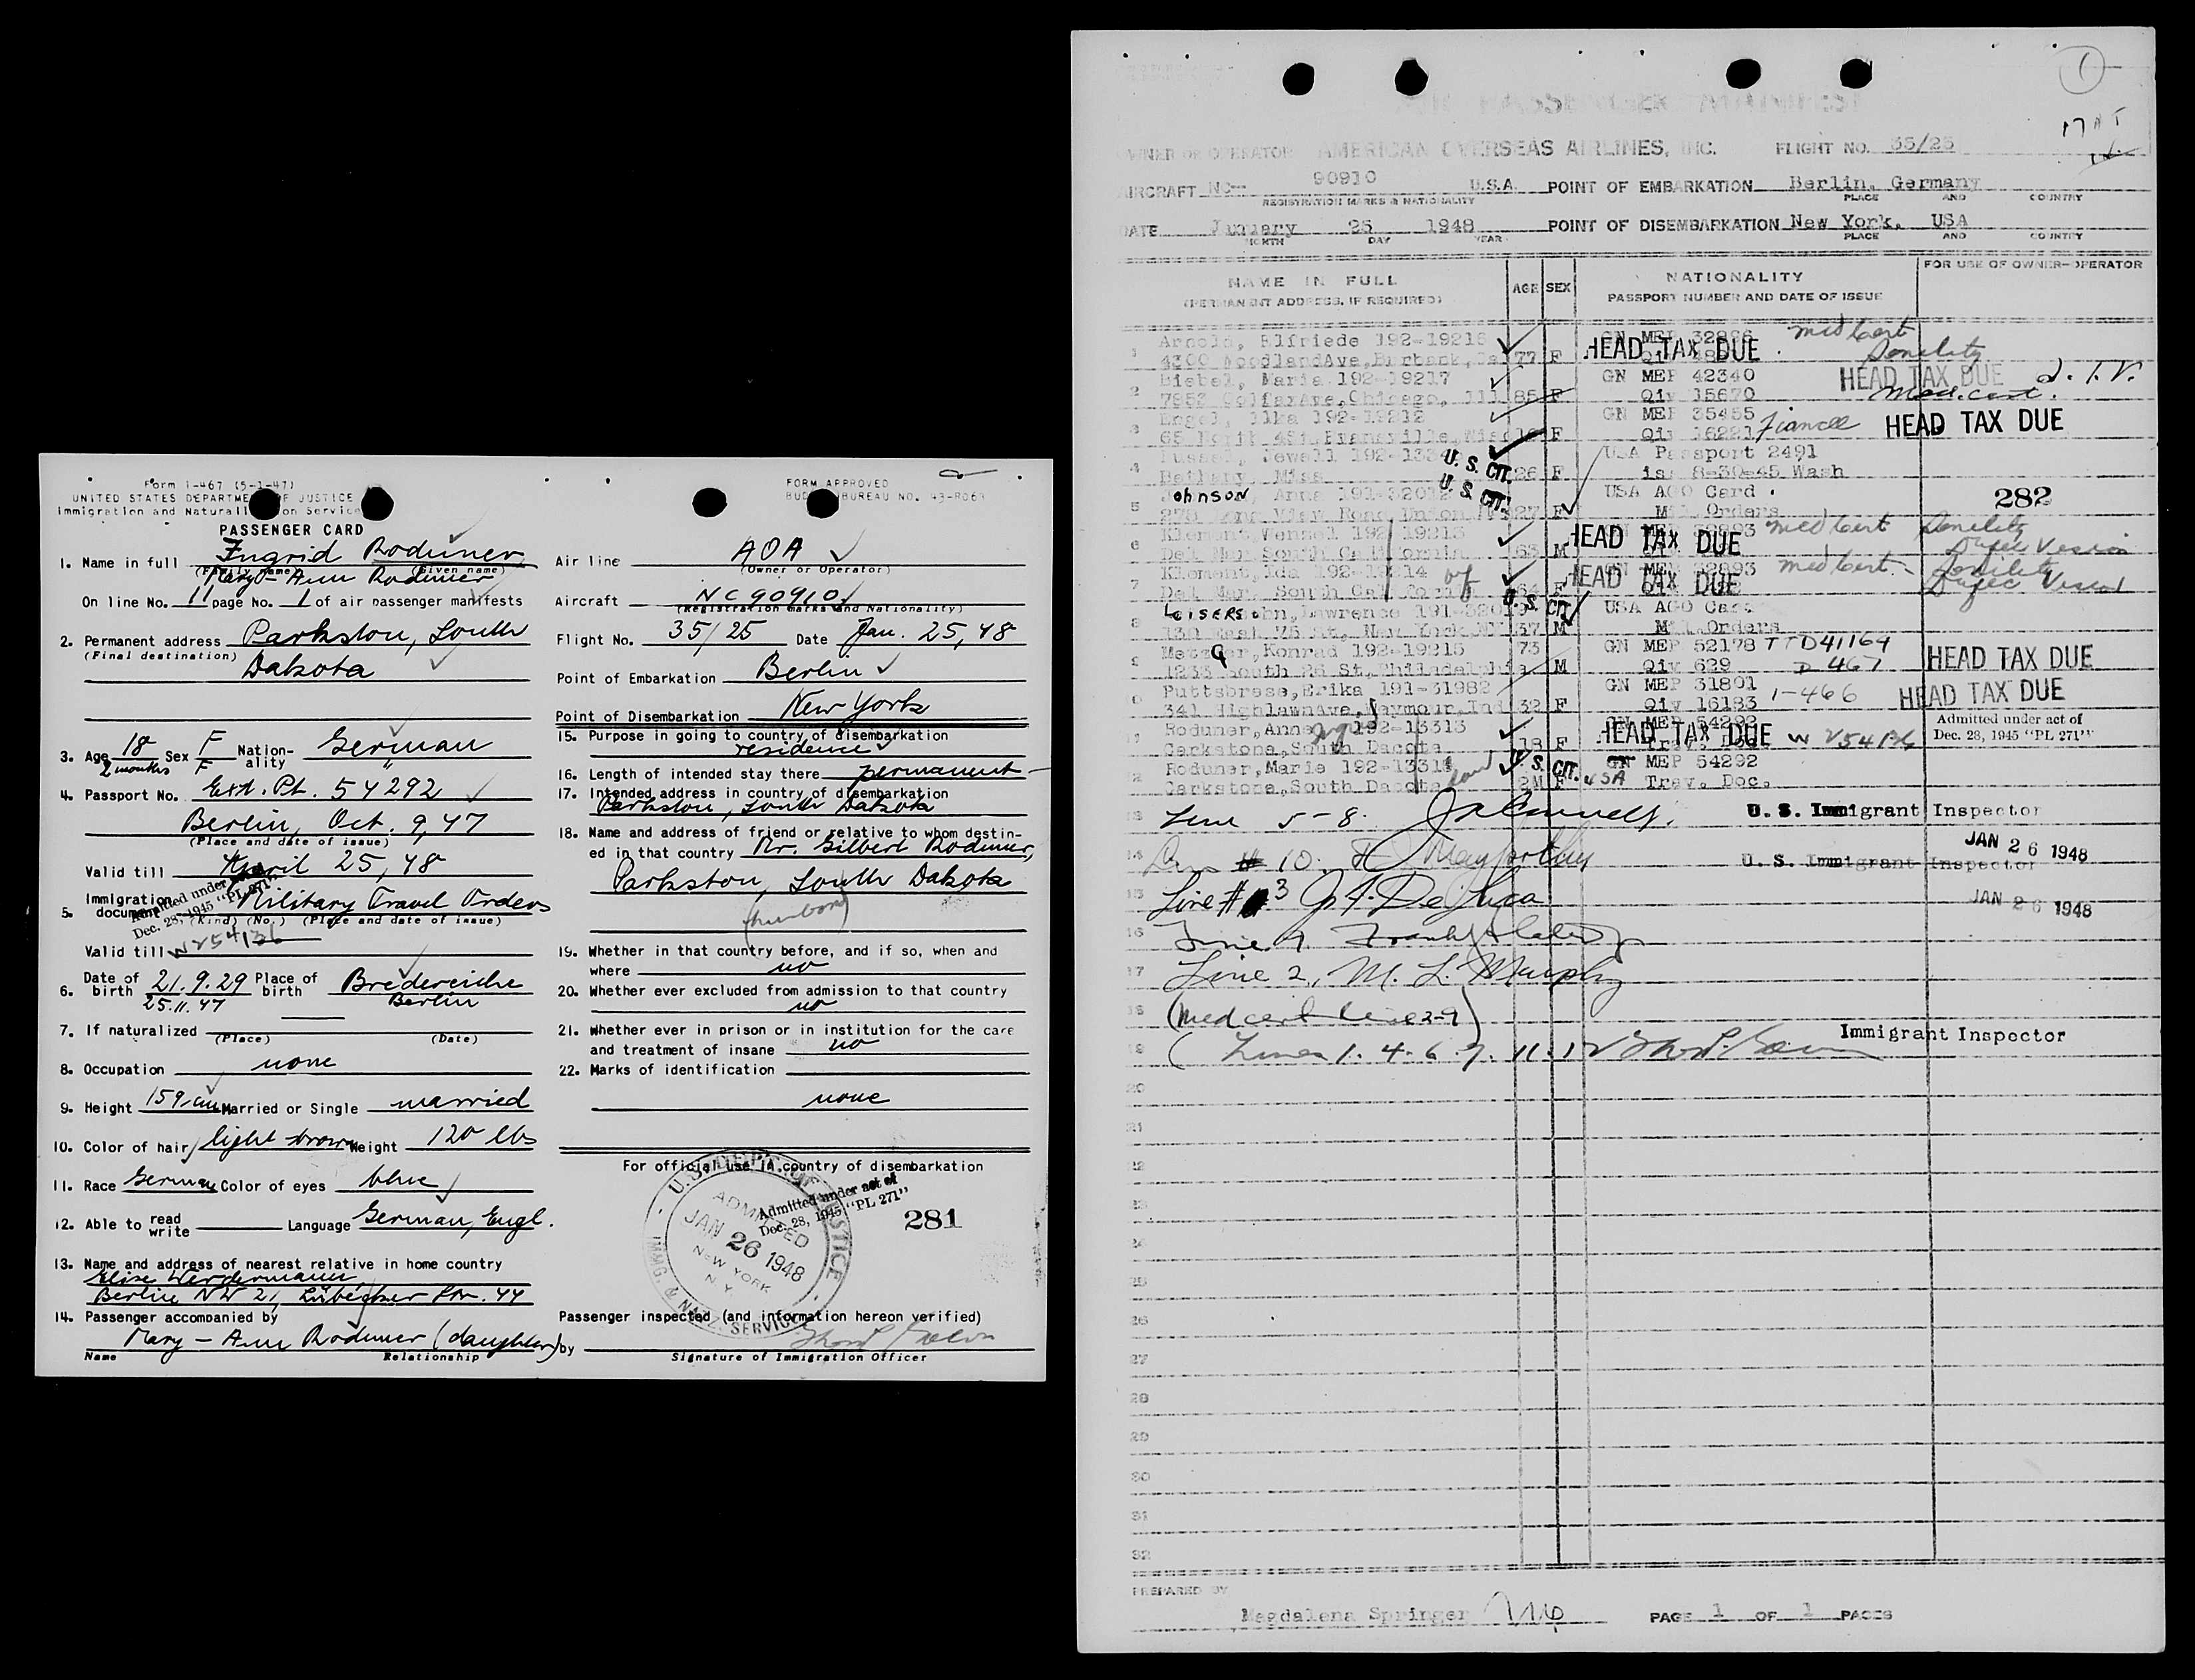 Form I-467 (5-1-47)
UNITED STATES DEPARTMENT OF JUSTICE
Immigration and Naturalization Service
PASSENGER CARD
FORM APPROVED
BUREAU NO. 43-R069
1. Name in full Ingrid Roduner
(Family name) (Given name)
Mary-Ann Roduner
On line No. 11 page No. 1 of air passenger manifests
2. Permanent address Parkston, South
(Final destination)
Dakota
3. Age 18 Sex F Nation-ality German
2 months F "
4. Passport No. Ext. Pt. 54292
Berlin, Oct. 9, 47
(Place and date of issue)
Valid till April 25, 48
Admitted under act of
Dec. 28, 1945 "PL 271"
5. Immigration document Military Travel Orders
(Kind) (No.) (Place and date of issue)
Valid till W254136
6. Date of birth 21.9.29 Place of birth Bredereiche
25.11.47 Berlin
7. If naturalized
(Place) (Date)
8. Occupation none
9. Height 159 cm Married or Single married
10. Color of hair light brown Weight 120 lbs
11. Race German Color of eyes blue
12. Able to read write Language German, Engl.
13. Name and address of nearest relative in home country
Elise Werdermann
Berlin NW 21, Lübecker Str. 44
14. Passenger accompanied by
Mary-Ann Roduner (daughter)
Name Relationship
Air line AOA
(Owner or Operator)
Aircraft NC90910
(Registration marks and Nationality)
Flight No. 35/25 Date Jan. 25, 48
Point of Embarkation Berlin
Point of Disembarkation New York
15. Purpose in going to country of disembarkation
residence
16. Length of intended stay there permanent
17. Intended address in country of disembarkation
Parkston, South Dakota
18. Name and address of friend or relative to whom destin-
ed in that country Mr. Gilbert Roduner,
Parkston, South Dakota
(husband)
19. Whether in that country before, and if so, when and
where no
20. Whether ever excluded from admission to that country
no
21. Whether ever in prison or in institution for the care
and treatment of insane no
22. Marks of identification
none
For official use in country of disembarkation
U.S. DEPT. OF JUSTICE
ADMITTED
JAN 26 1948
NEW YORK
N.Y.
IMMG. & NATZ. SERVICE
Admitted under act of
Dec. 28, 1945 "PL 271"
281
Passenger inspected (and information hereon verified)
by
Signature of Immigration Officer
1
AIR PASSENGER MANIFEST
OWNER OR OPERATOR AMERICAN OVERSEAS AIRLINES, INC. FLIGHT NO. 35/25
AIRCRAFT NC- 90910 U.S.A. POINT OF EMBARKATION Berlin, Germany
REGISTRATION MARKS & NATIONALITY PLACE AND COUNTRY
DATE January 25 1948 POINT OF DISEMBARKATION New York, USA
MONTH DAY YEAR PLACE AND COUNTRY
NAME IN FULL AGE SEX NATIONALITY FOR USE OF OWNER-OPERATOR
(PERMANENT ADDRESS, IF REQUIRED) PASSPORT NUMBER AND DATE OF ISSUE
1 Arnold, Elfriede 192-19216 GN MEP Med Cert
4300 WoodlandAve, Burbank, 77 F HEAD TAX DUE Senility
2 Biebel, Maria 192-19217 GN MEP 42340 HEAD TAX DUE
7953 ColfaxAve, Chicago, Ill 85 F Qiv 15670 Med. cert.
3 Engel, Ilka 192-19212 GN MEP 35455 Fiancee HEAD TAX DUE
F Qiv 16221
4 Jewell U.S. CIT. USA Passport 2491
Bethany, Miss 26 F iss 8-30-45 Wash
5 Johnson, Anna 191-32012 U.S. CIT. USA AGO Card 282
270 Long View Road, Union NJ 27 F Mil. Orders
6 Klement, Wensel 192-19213 HEAD TAX DUE Med Cert Senility
Del Mar, South California 63 M
7 Klement, Ida HEAD TAX DUE Med Cert. Senility
Del Mar, South F
8 LEISERSOhn, Lawrence U.S. CIT. USA AGO Card
130 East 75 St, New York, NY 37 M Mil. Orders
9 MetzGer, Konrad 192-19215 73 GN MEP 52178 TTD41164
1233 South 26 St, Philadelphia M Qiv 629 D 467 HEAD TAX DUE
10 Puttabrese, Erika 191-31982 GN MEP 31801 1-466 HEAD TAX DUE
341 Highlawn Ave, 32 F Qiv 16183
11 Roduner, Anna 192-13313 GN MEP 54292 Admitted under act of
Garkstone, South Dacota 18 F HEAD TAX DUE W 254136 Dec. 28, 1945 "PL 271"
12 Roduner, Marie 192-13314 U.S. CIT. GN MEP 54292
Garkstone, South Dacota 2M F USA Trav. Doc.
13 Line 5-8. U.S. Immigrant Inspector
JAN 26 1948
14 10. U.S. Immigrant Inspector
15 Line # 3 J. F. DeLuca JAN 26 1948
16 Line 9.
17 Line 2, M. L. Murphy
18 (Med cert line 2-9)
Immigrant Inspector
19 (Lines 1. 4. 6. 7. 11. 12
20
21
22
23
24
25
26
27
28
29
30
31
32
PREPARED BY
Magdalena Springer PAGE 1 OF 1 PAGES